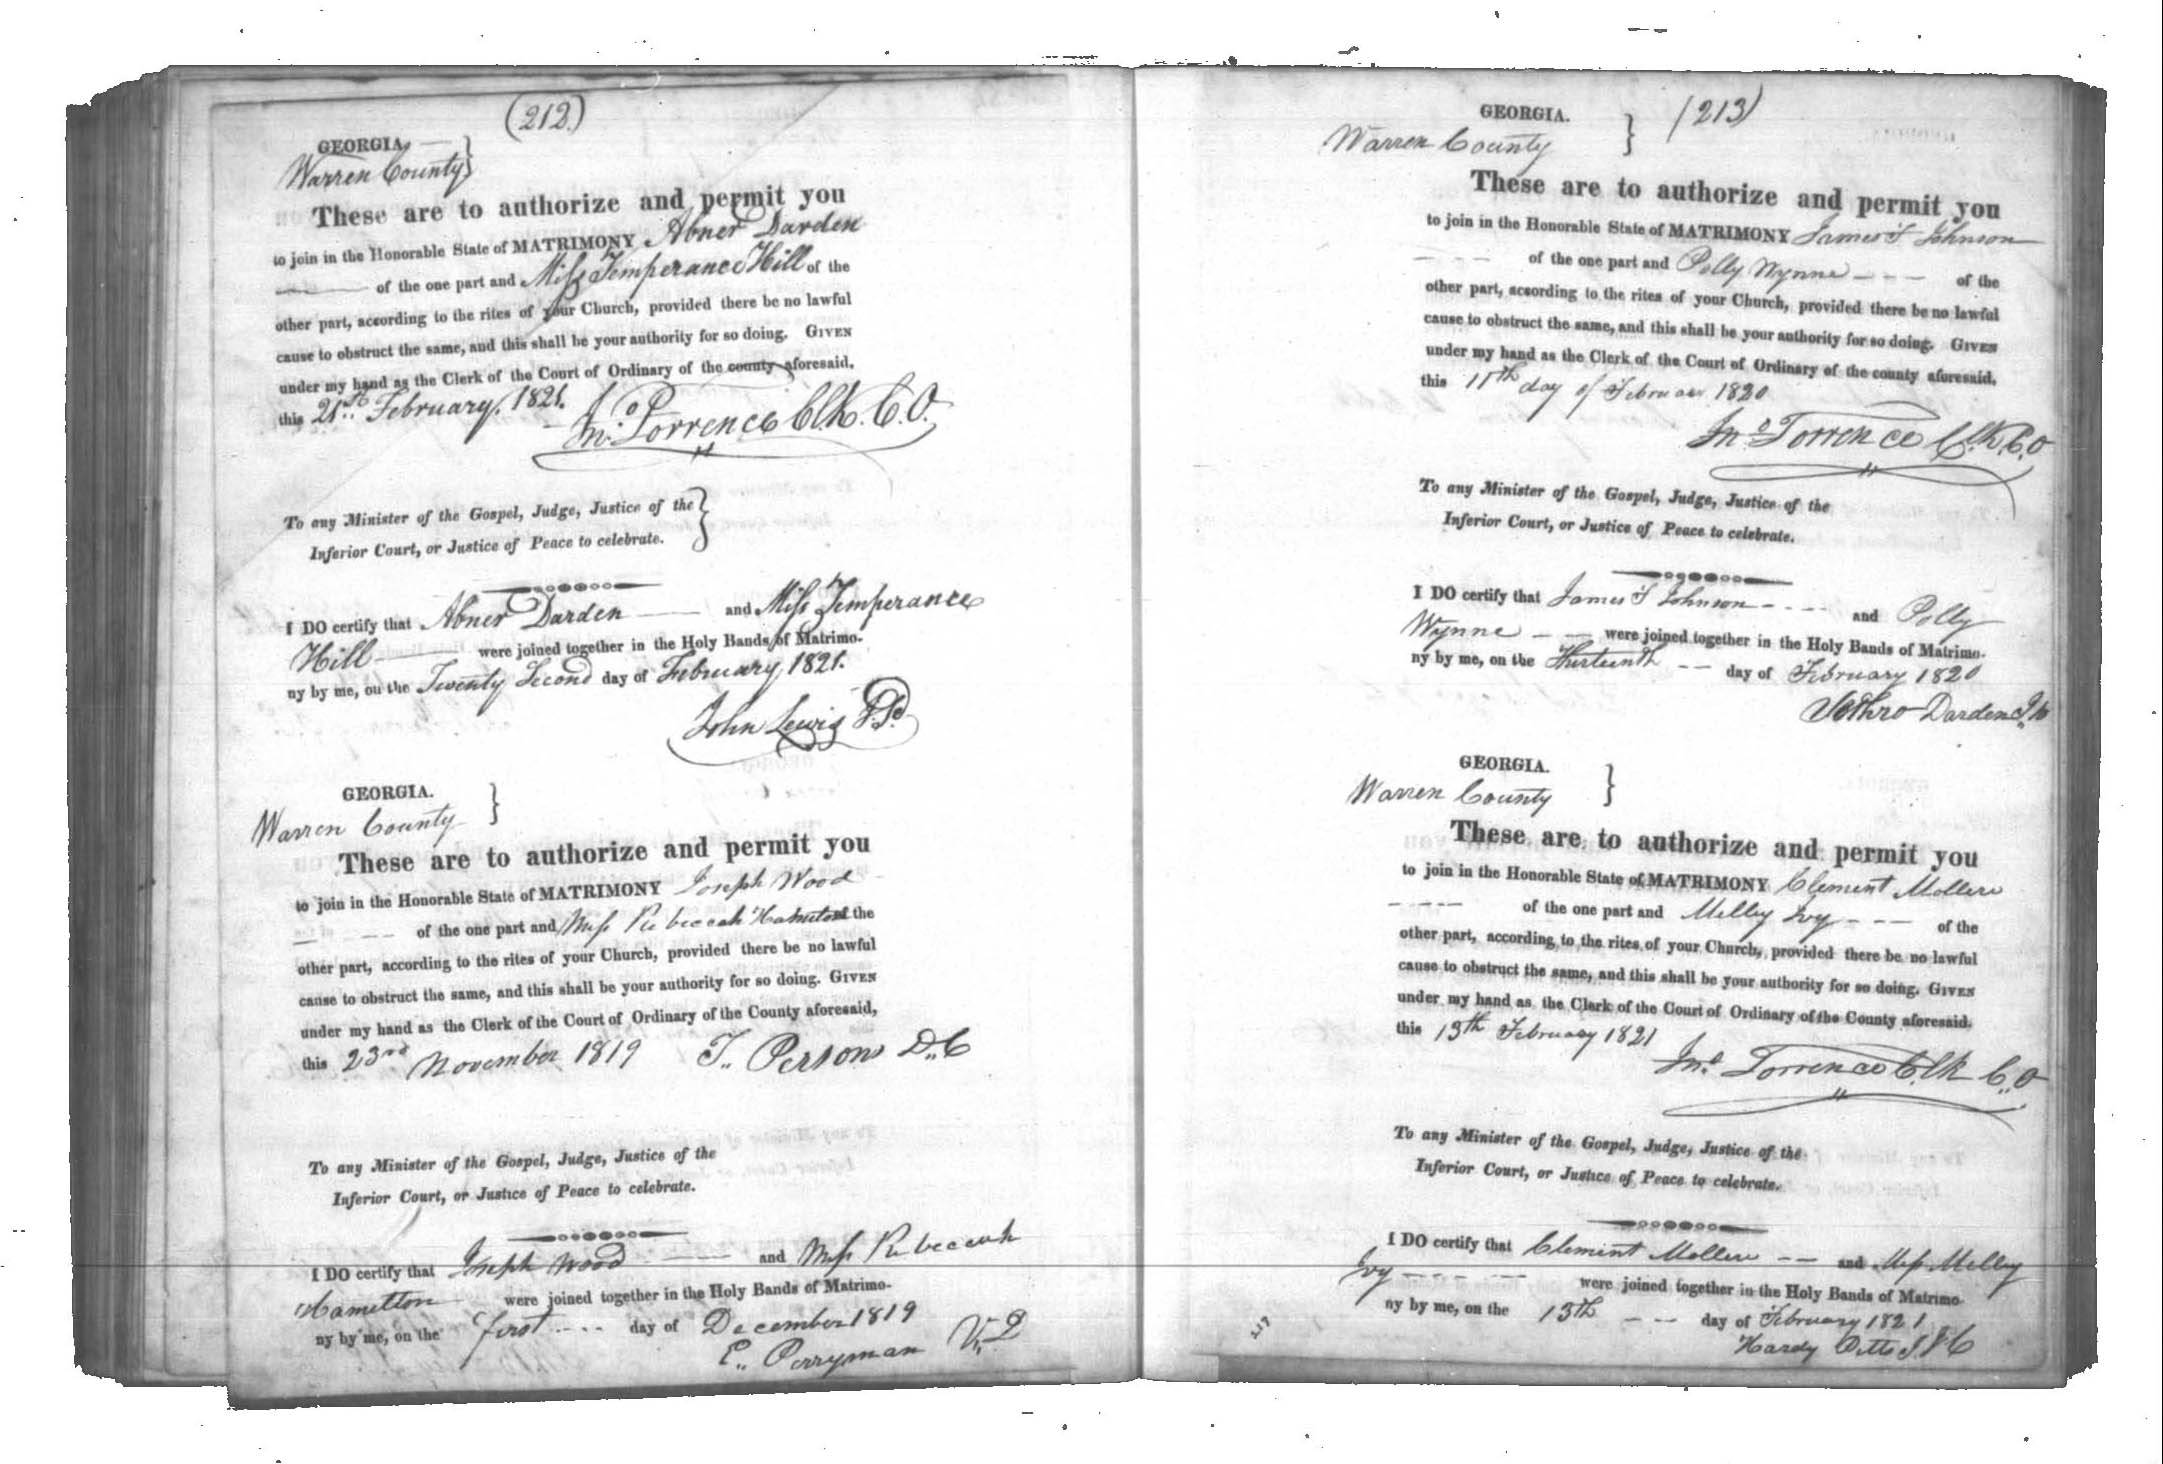 (212.)
GEORGIA,
Warren County
These are to authorize and permit you
to join in the Honorable State of MATRIMONY Abner Darden
of the one part and Miss Temperance Hill of the
other part, according to the rites of your Church, provided there be no lawful
cause to obstruct the same, and this shall be your authority for so doing. GIVEN
under my hand as the Clerk of the Court of Ordinary of the county aforesaid,
this 21st. February, 1821.
Jno. Torrence Clk. C.O.
To any Minister of the Gospel, Judge, Justice of the
Inferior Court, or Justice of Peace to celebrate.
I DO certify that Abner Darden and Miss Temperance
Hill were joined together in the Holy Bands of Matrimo-
ny by me, on the Twenty Second day of February, 1821.
John Lewis
GEORGIA.
Warren County
These are to authorize and permit you
to join in the Honorable State of MATRIMONY Joseph Wood
of the one part and Miss Rebeccah Hamelton of the
other part, according to the rites of your Church, provided there be no lawful
cause to obstruct the same, and this shall be your authority for so doing. GIVEN
under my hand as the Clerk of the Court of Ordinary of the County aforesaid,
this 23rd November 1819 T. Persons D.C
To any Minister of the Gospel, Judge, Justice of the
Inferior Court, or Justice of Peace to celebrate.
I DO certify that Joseph Wood and Miss Rebeccah
Hamelton were joined together in the Holy Bands of Matrimo-
ny by me, on the first day of December 1819
E. Perryman V.D
(213)
GEORGIA.
Warren County
These are to authorize and permit you
to join in the Honorable State of MATRIMONY James S Johnson
of the one part and Polly Wynne of the
other part, according to the rites of your Church, provided there be no lawful
cause to obstruct the same, and this shall be your authority for so doing. GIVEN
under my hand as the Clerk of the Court of Ordinary of the county aforesaid,
this 11th day of Februar 1820
Jno Torrence Clk C.O
To any Minister of the Gospel, Judge, Justice of the
Inferior Court, or Justice of Peace to celebrate.
I DO certify that James S Johnson and Polly
Wynne were joined together in the Holy Bands of Matrimo-
ny by me, on the Thirteenth day of February 1820
Jethro Darden
GEORGIA.
Warren County
These are to authorize and permit you
to join in the Honorable State of MATRIMONY Clement Mollere
of the one part and Milley Ivy of the
other part, according to the rites of your Church, provided there be no lawful
cause to obstruct the same, and this shall be your authority for so doing. GIVEN
under my hand as the Clerk of the Court of Ordinary of the County aforesaid,
this 13th February 1821
Jno. Torrence Clk C.O
To any Minister of the Gospel, Judge, Justice of the
Inferior Court, or Justice of Peace to celebrate.
I DO certify that Clement Mollere and Miss Milley
Ivy were joined together in the Holy Bands of Matrimo-
ny by me, on the 13th day of February 1821
217
Hardy Pitts